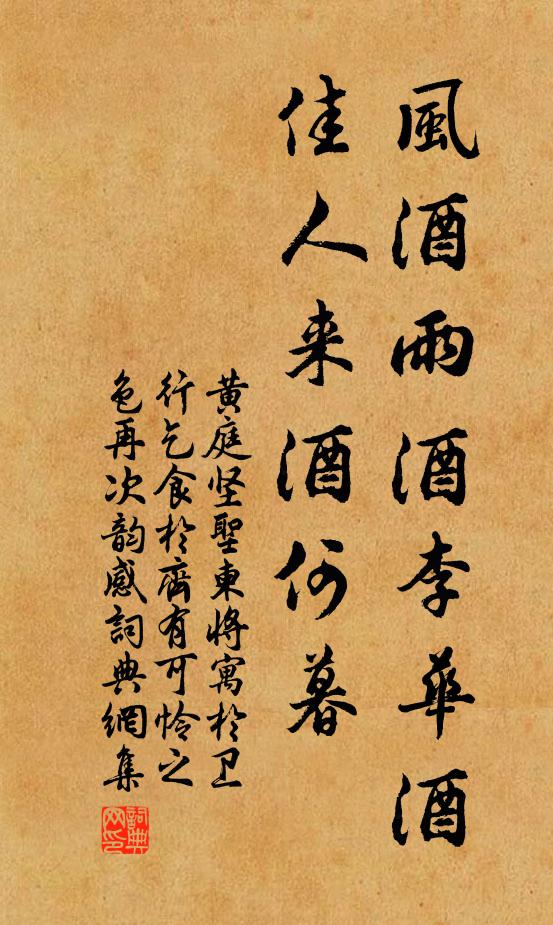 風酒雨酒李華酒
佳人来酒何暮
黄庭坚聖東将寓於卫
行乞食於齊有可怜之
色再次韵感詞典網集
詞典网印